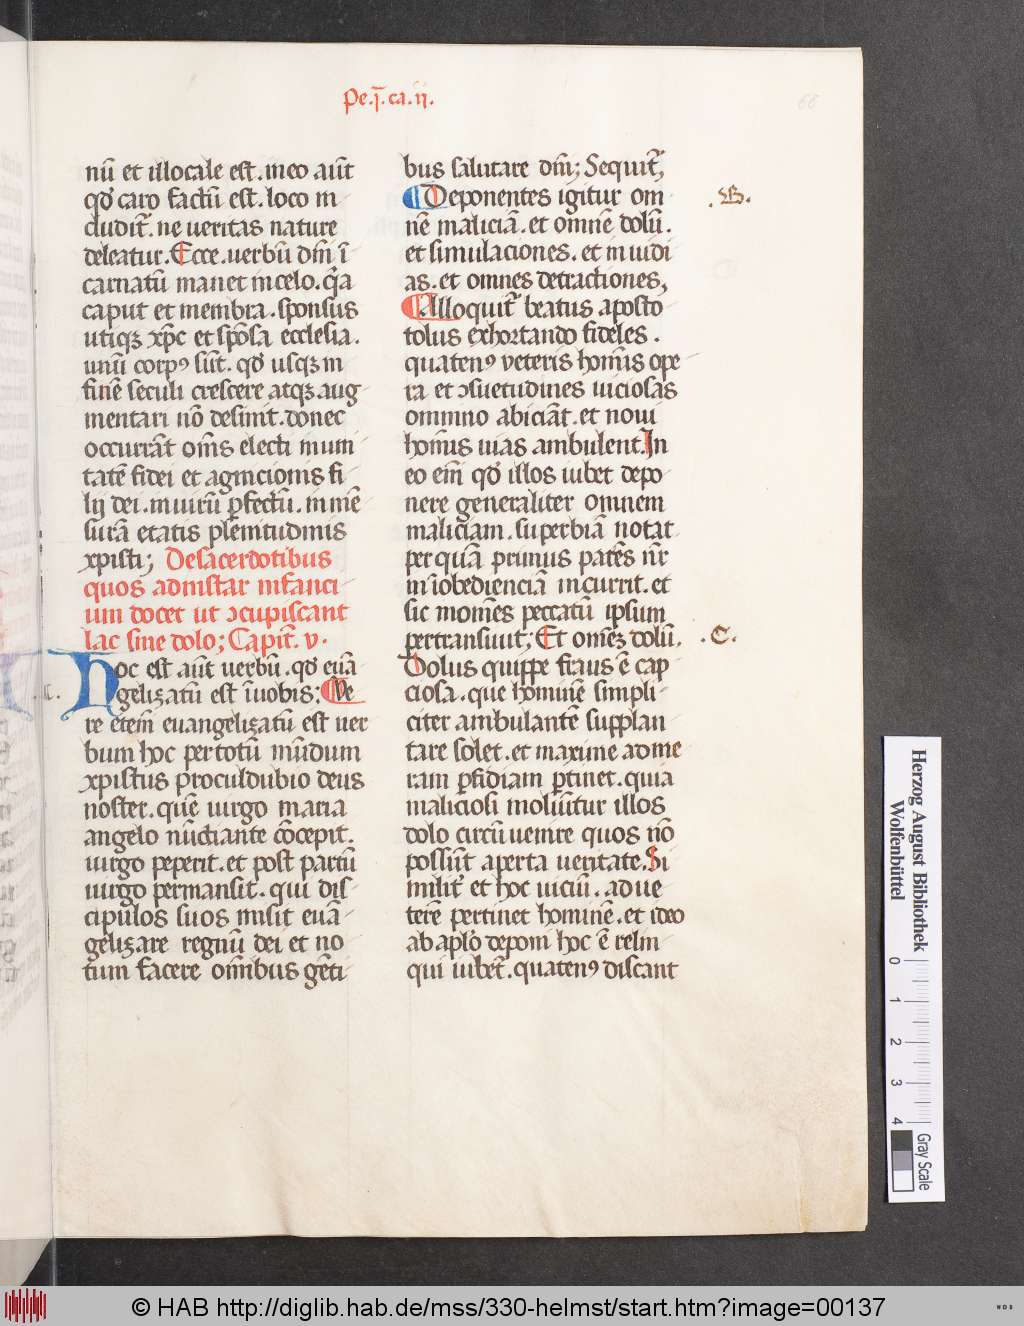 Pe.ī.ca.ii.
68
nū et illocale est. ineo aūt
qd̛ caro factū est. loco in
cludit᷑. ne veritas nature
deleatur. Ecce. verbū dm̄ ī
carnatū manet incelo. q̄a
caput et membra. sponsus
utiqꝫ xp̄c et spōsa ecclesia.
unū corpꝰ sūt. qd̛ usqꝫ in
finē seculi crescere atqꝫ aug
mentari nō desinit. donec
occurrāt om̄s electi in uni
tatē fidei et agnicionis fi
lij dei. in virū ꝑfectū. in mē
surā etatis plenitudinis
xpisti; De sacerdotibus
quos ad instar infanci
um docet ut ↄcupiscant
lac sine dolo; Capit᷑. v.
Hoc est aūt verbū. qd̛ euā
gelizatū est ī vobis; Ve
re etem̄ euangelizatū est ver
bum hoc per totū mūdum
xpistus procul dubio deus
noster. quē virgo maria
angelo nūctiante cōcepit.
virgo peperit. et post partū
virgo permansit. qui dis
cipulos suos misit euā
gelizare regnū dei et no
tum facere om̄ibus gēti
bus salutare dm̄; Sequit᷑,
Deponentes igitur om
nē maliciā. et omnē dolū.
et simulaciones. et inuidi
as. et omnes detractiones,
Alloquit᷑ beatus aposto
tolus exhortando fideles.
quatenꝰ veteris hom̄is ope
ra et ↄsuetudines viciosas
omnino abiciāt. et novi
hom̄is vias ambulent. In
eo em̄ qd̛ illos iubet depo
nere generaliter omnem
maliciam. superbiā notat
per quā primus parēs nr̄
in īobedienciā incurrit. et
sic mom̄es peccatū ipsum
pertransiuit; Et om̄eꝫ dolū.
Dolus quippe fraus ē cap
ciosa. que hominē simpli
citer ambulantē supplan
tare solet. et maxime ad me
ram ꝑfidiam ꝑtinet. quia
maliciosi moliūtur illos
dolo circūuenire quos nō
possūt aperta veritate. Si
milit᷑ et hoc viciū. ad ve
terē pertinet hominē. et ideo
ab aplō deponi hoc ē relin
qui iubet᷑. quatenꝰ discant
.B.
.C.
Herzog August Bibliothek
Wolfenbüttel
0 1 2 3 4
Gray Scale
© HAB http://diglib.hab.de/mss/330-helmst/start.htm?image=00137